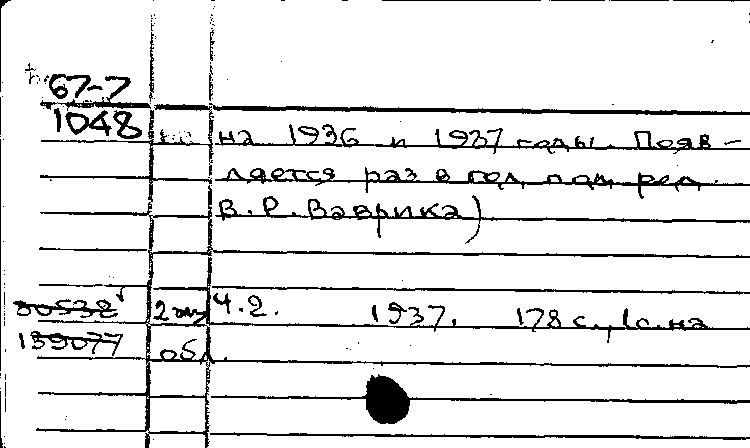 67-7
1048
на 1936 и 1937 годы. Появ-
ляется раз в год под ред.
В.Р. Ваврика)
80532 2 экз Ч.2. 1937. 178 с., 1 с. на
139077 обл.